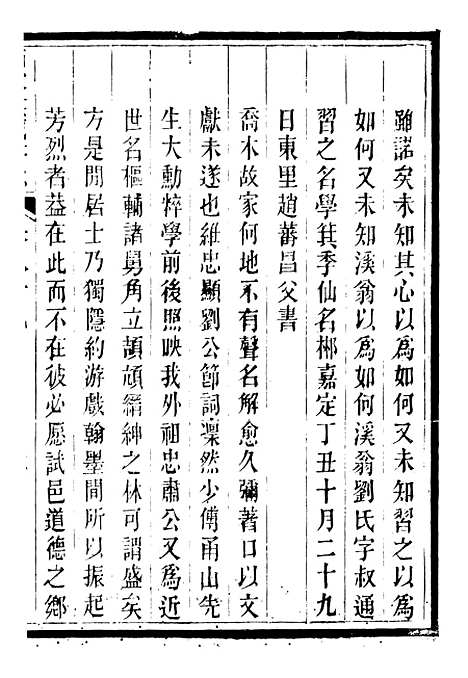 雖諾矣未知其心以為如何又未知習之以為
如何又未知溪翁以為如何溪翁劉氏字叔通
習之名學箕季仙名郴嘉定丁丑十月二十九
日東里趙蕃昌父書
喬木故家何地不有聲名解愈久彌著口以文
獻未遂也維忠顯劉公節詞凜然少傅甬山先
生大勳粹學前後照映我外祖忠肅公又為近
世名樞輔諸舅角立頡頏縉紳之林可謂盛矣
方是閒居士乃獨隱約游戲翰墨間所以振起
芳烈者益在此而不在彼必愿試邑道德之鄉